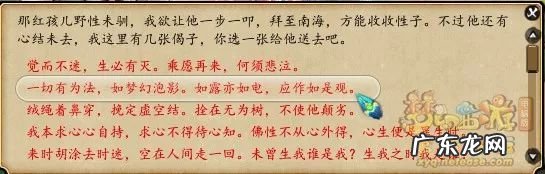 那红孩儿野性未驯，我欲让他一步一叩，拜至南海，方能收收性子。不过他还有
心结未去，我这里有几张偈子，你选一张给他送去吧。
觉而不迷，生必有灭。乘愿再来，何须悲泣。
一切有为法，如梦幻泡影。如露亦如电，应作如是观。
绒绳着鼻穿，挽定虚空结。拴在无为树，不使他颠劣。
我本求心心自持，求心不得待心知。佛性不从心外得，心生便是
来时胡涂去时迷，空在人间走一回。未曾生我谁是我？生我之时我
梦幻西游
广东龙网